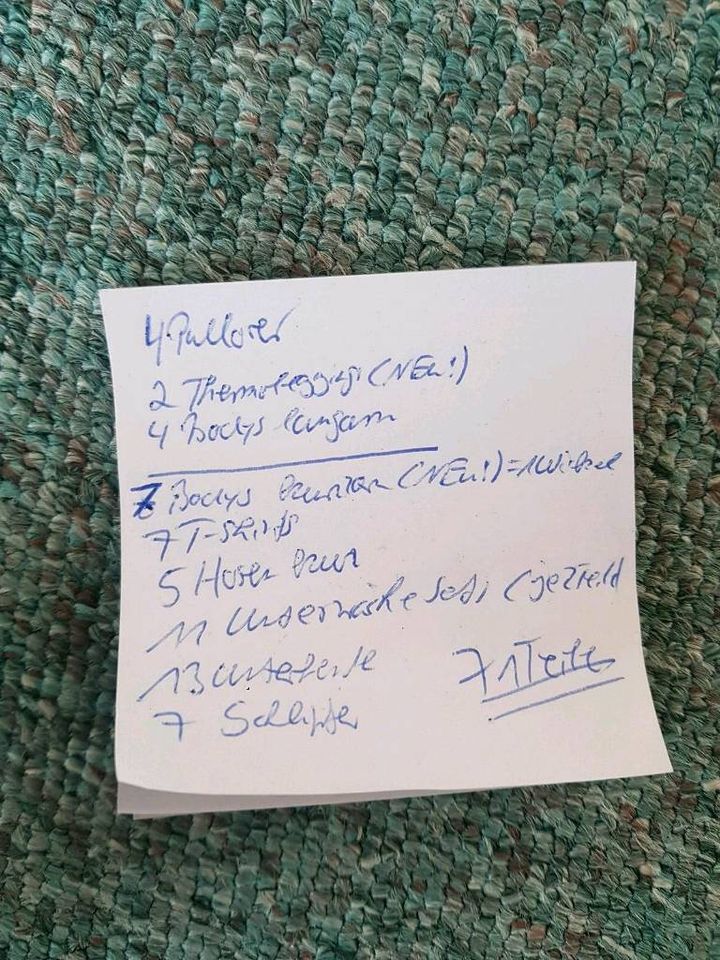 4 Pullover
2 Thermoleggings (NEU!)
4 Bodys langarm
7 Bodys kurzarm (NEU!) = 1 Wickel
7 T-Shirts
5 Hosen kurz
11 Unterwäsche Sets (je 2 Teile)
13 Unterteile
7 Schlüpfer
71 Teile